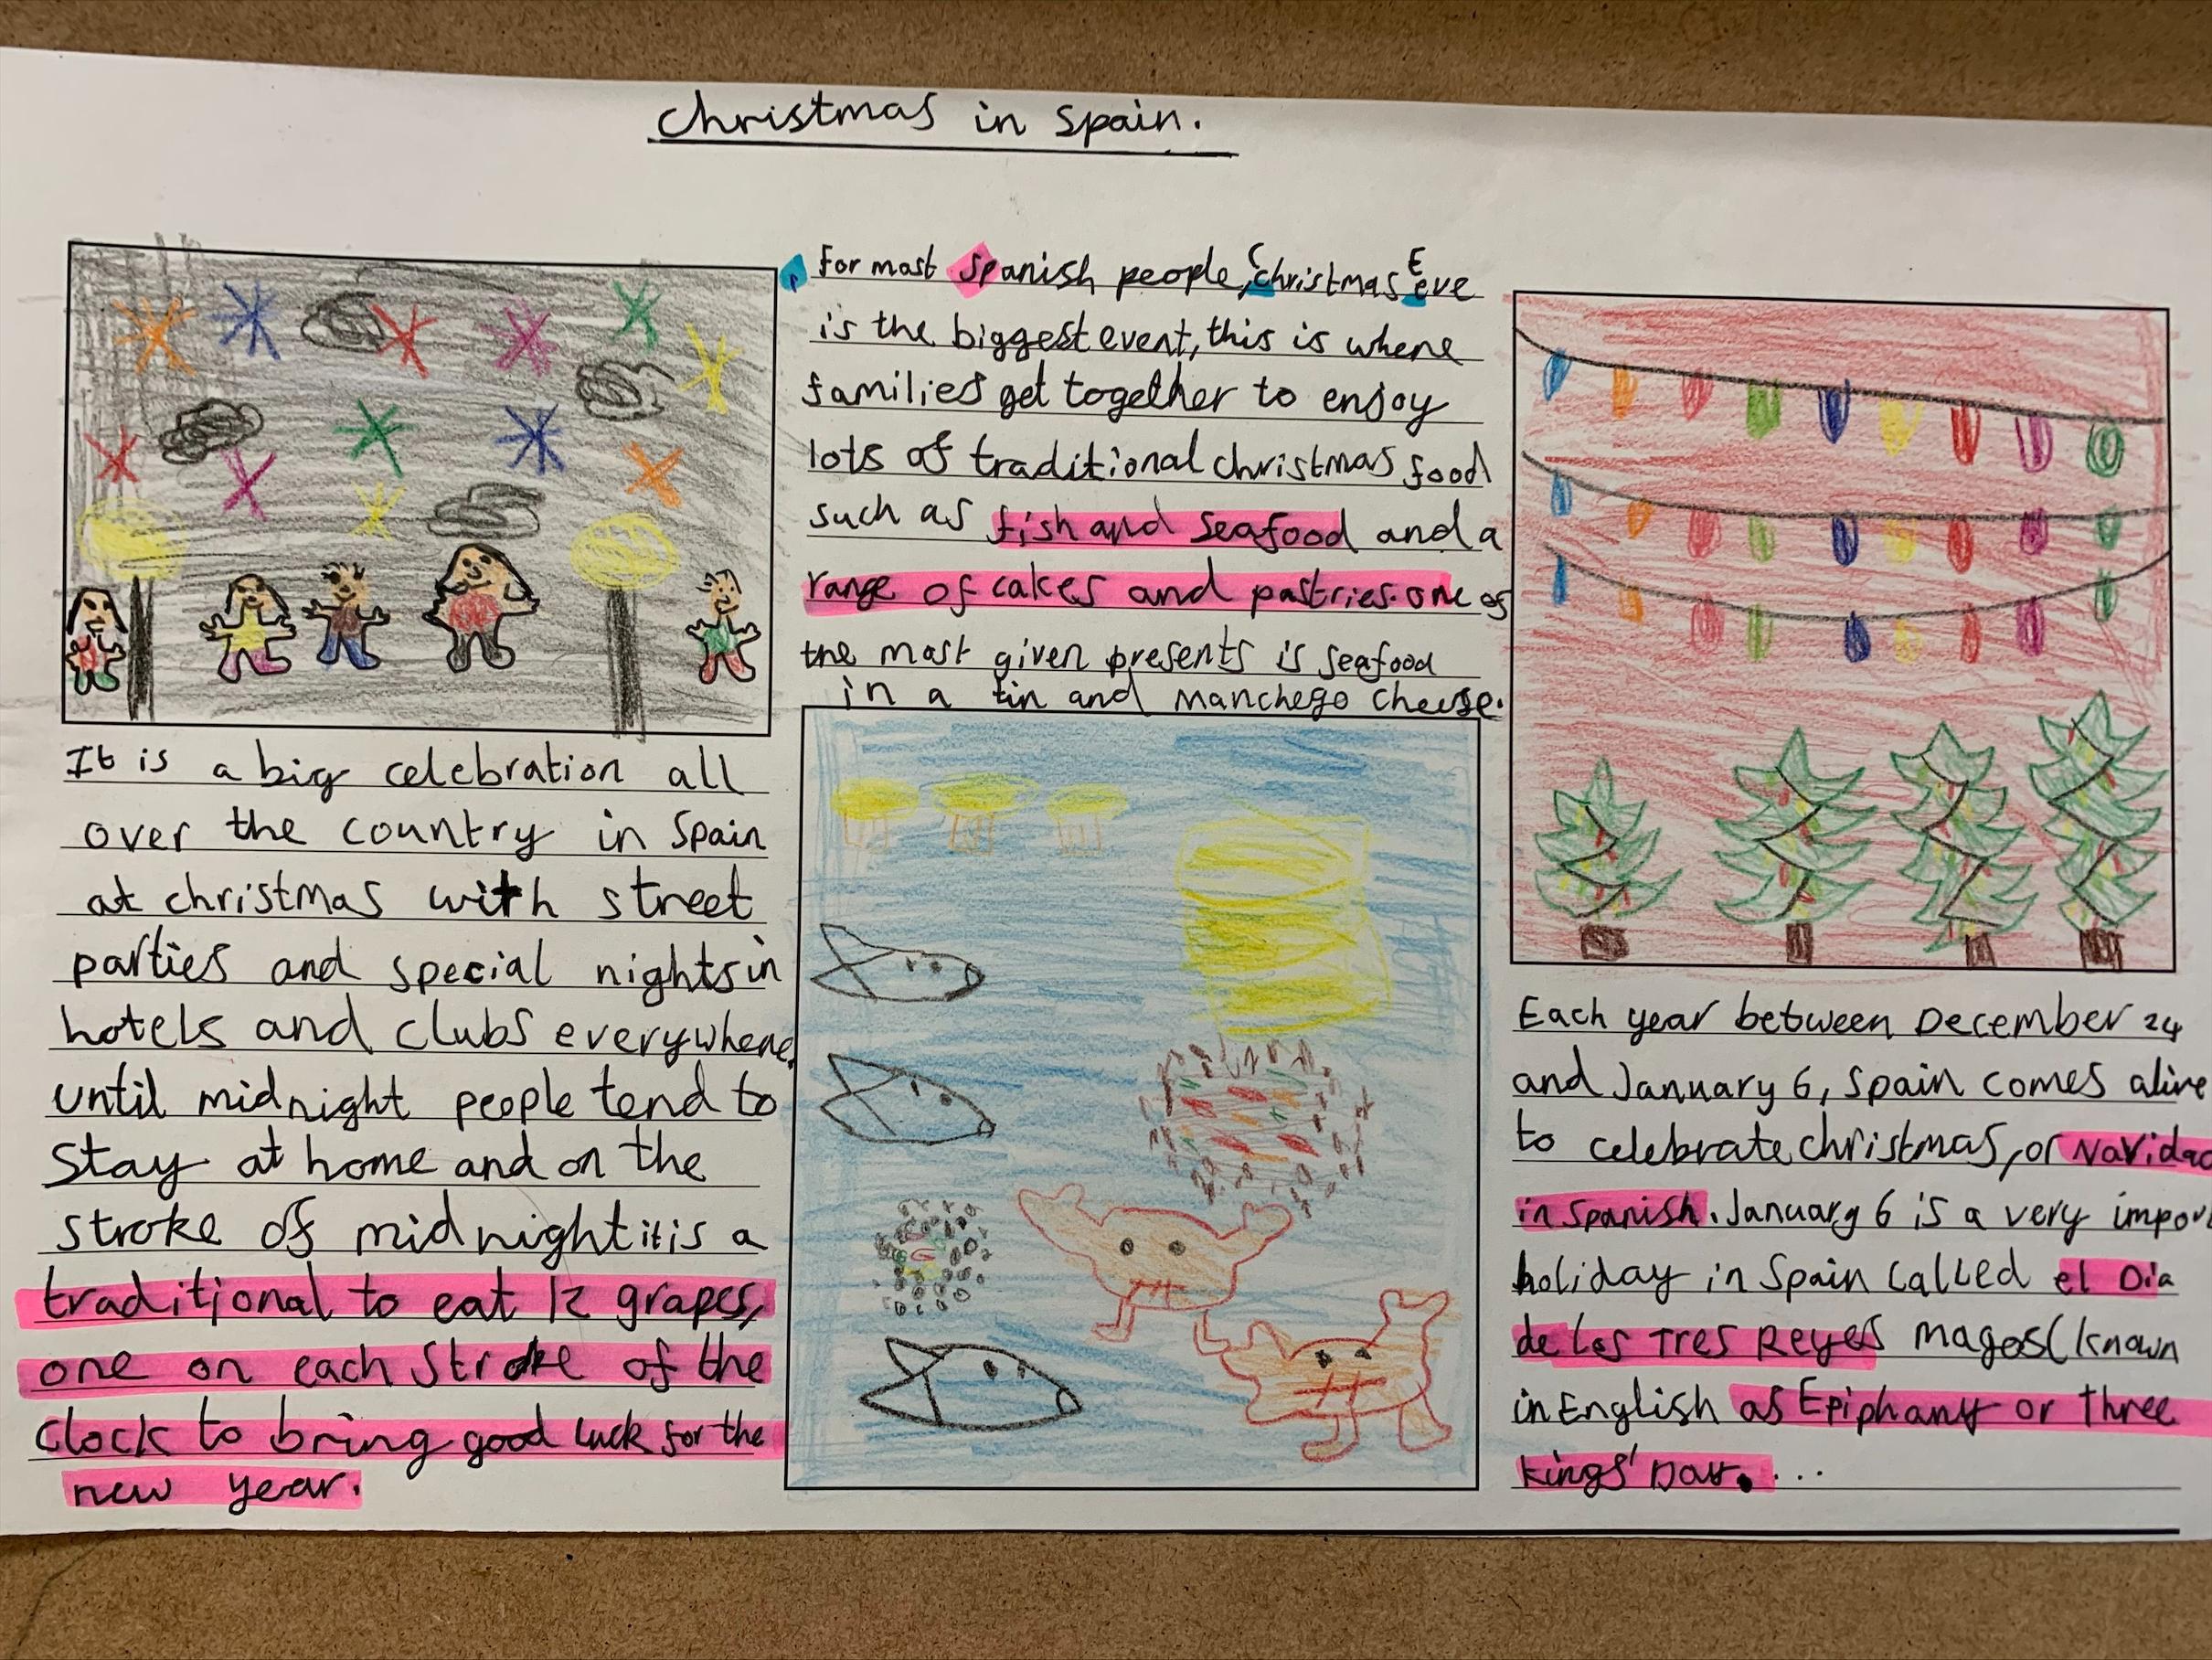 christmas in spain.
It is a big celebration all
over the country in spain
at christmas with street
parties and special nights in
hotels and clubs everywhere.
until midnight people tend to
stay at home and on the
stroke of midnight it is a
traditional to eat 12 grapes,
one on each stroke of the
clock to bring good luck for the
new year.
for most spanish people, Christmas Eve
is the biggest event, this is where
families get together to enjoy
lots of traditional christmas food
such as fish and seafood and a
range of cakes and pastries. one of
the most given presents is seafood
in a tin and manchego cheese.
Each year between December 24
and January 6, spain comes alive
to celebrate christmas, or Navidad
in spanish. January 6 is a very impor
holiday in spain called el Dia
de los Tres Reyes magos (known
in English as Epiphany or three
kings' Day. ...